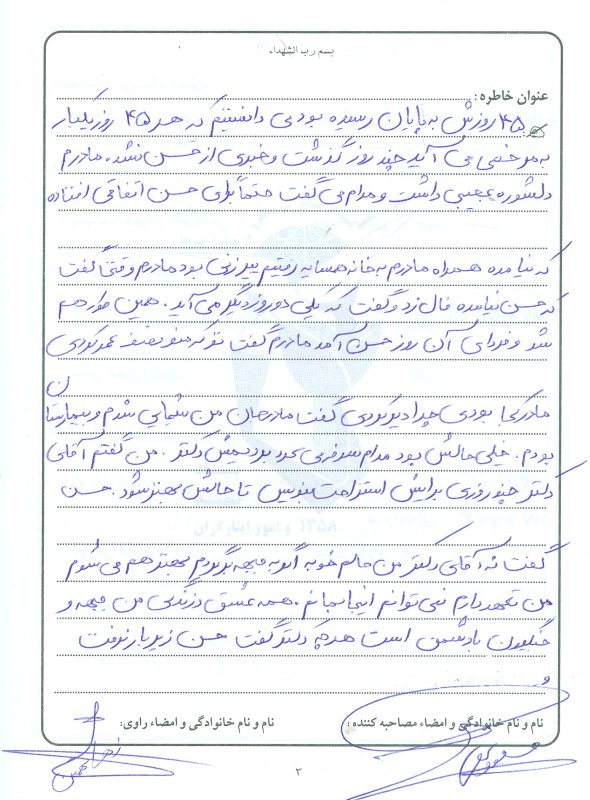 بسم رب الشهداء
عنوان خاطره:
۴۵ روزش به پایان رسیده بود می دانستیم که هر ۴۵ روز یکبار
به مرخصی می آید چند روز گذشت و خبری از حسن نشد. مادرم
دلشوره عجیبی داشت و مدام می گفت حتماً برای حسن اتفاقی افتاده
که نیامده همراه مادرم به خانه همسایه رفتیم پیرزنی بود مادرم وقتی گفت
که حسن نیامده فال زد و گفت که یکی دو روز دیگر می آید. همین طور هم
شد و فردای آن روز حسن آمد مادرم گفت تو که منو نصف عمر کردی
مادر کجا بودی چرا دیر کردی گفت مادر جان من شیمیایی شدم و بیمارستان
بودم. خیلی حالش بد بود مدام سرفه می کرد بردیمش دکتر. من گفتم آقای
دکتر چند روزی برایش استراحت بنویس تا حالش بهتر شود. حسن
گفت نه آقای دکتر من حالم خوبه اگه به جبهه برگردم بهتر هم می شوم
من تعهد دارم نمی توانم اینجا بمانم. همه عشق و زندگی من جبهه و
جنگیدن با دشمن است هرچه دکتر گفت حسن زیر بار نرفت
و
۱۳۵۸ و امور ایثارگران
نام و نام خانوادگی و امضاء مصاحبه کننده: نام و نام خانوادگی و امضاء راوی:
۳